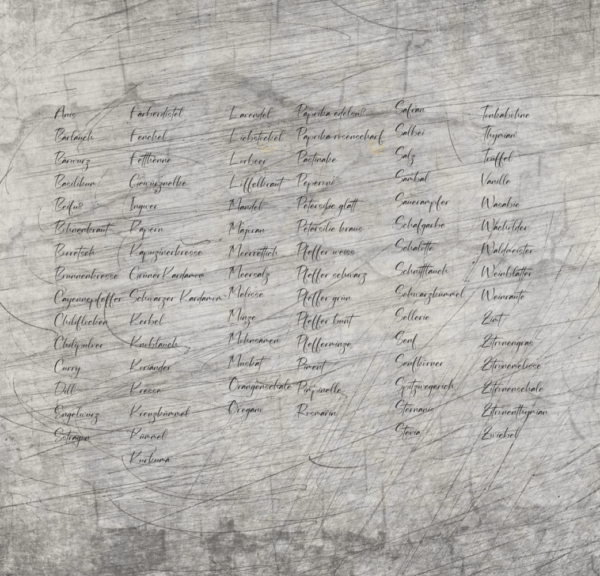 Anis
Bärlauch
Bärwurz
Basilikum
Beifuß
Blumenkraut
Borretsch
Brunnenkresse
Cayennepfeffer
Chiliflocken
Chilipulver
Curry
Dill
Engelwurz
Estragon
Färberdistel
Fenchel
Fetthenne
Gewürznelke
Ingwer
Kapern
Kapuzinerkresse
Grüner Kardamom
Schwarzer Kardamom
Kerbel
Knoblauch
Koriander
Kresse
Kreuzkümmel
Kümmel
Kurkuma
Lavendel
Liebstöckel
Lorbeer
Löffelkraut
Mandel
Majoran
Meerrettich
Meersalz
Melisse
Minze
Mohnsamen
Muskat
Orangenschale
Oregano
Paprika edelsüß
Paprika rosenscharf
Pastinake
Peperoni
Petersilie glatt
Petersilie kraus
Pfeffer weiss
Pfeffer schwarz
Pfeffer grün
Pfeffer bunt
Pfefferminze
Piment
Pimpinelle
Rosmarin
Safran
Salbei
Salz
Sambal
Sauerampfer
Schafgarbe
Schalotte
Schnittlauch
Schwarzkümmel
Sellerie
Senf
Senfkörner
Spitzwegerich
Sternanis
Stevia
Tonkabohne
Thymian
Trüffel
Vanille
Wasabie
Wacholder
Waldmeister
Weinblätter
Weinraute
Zimt
Zitronengras
Zitronenmelisse
Zitronenschale
Zitronenthymian
Zwiebel